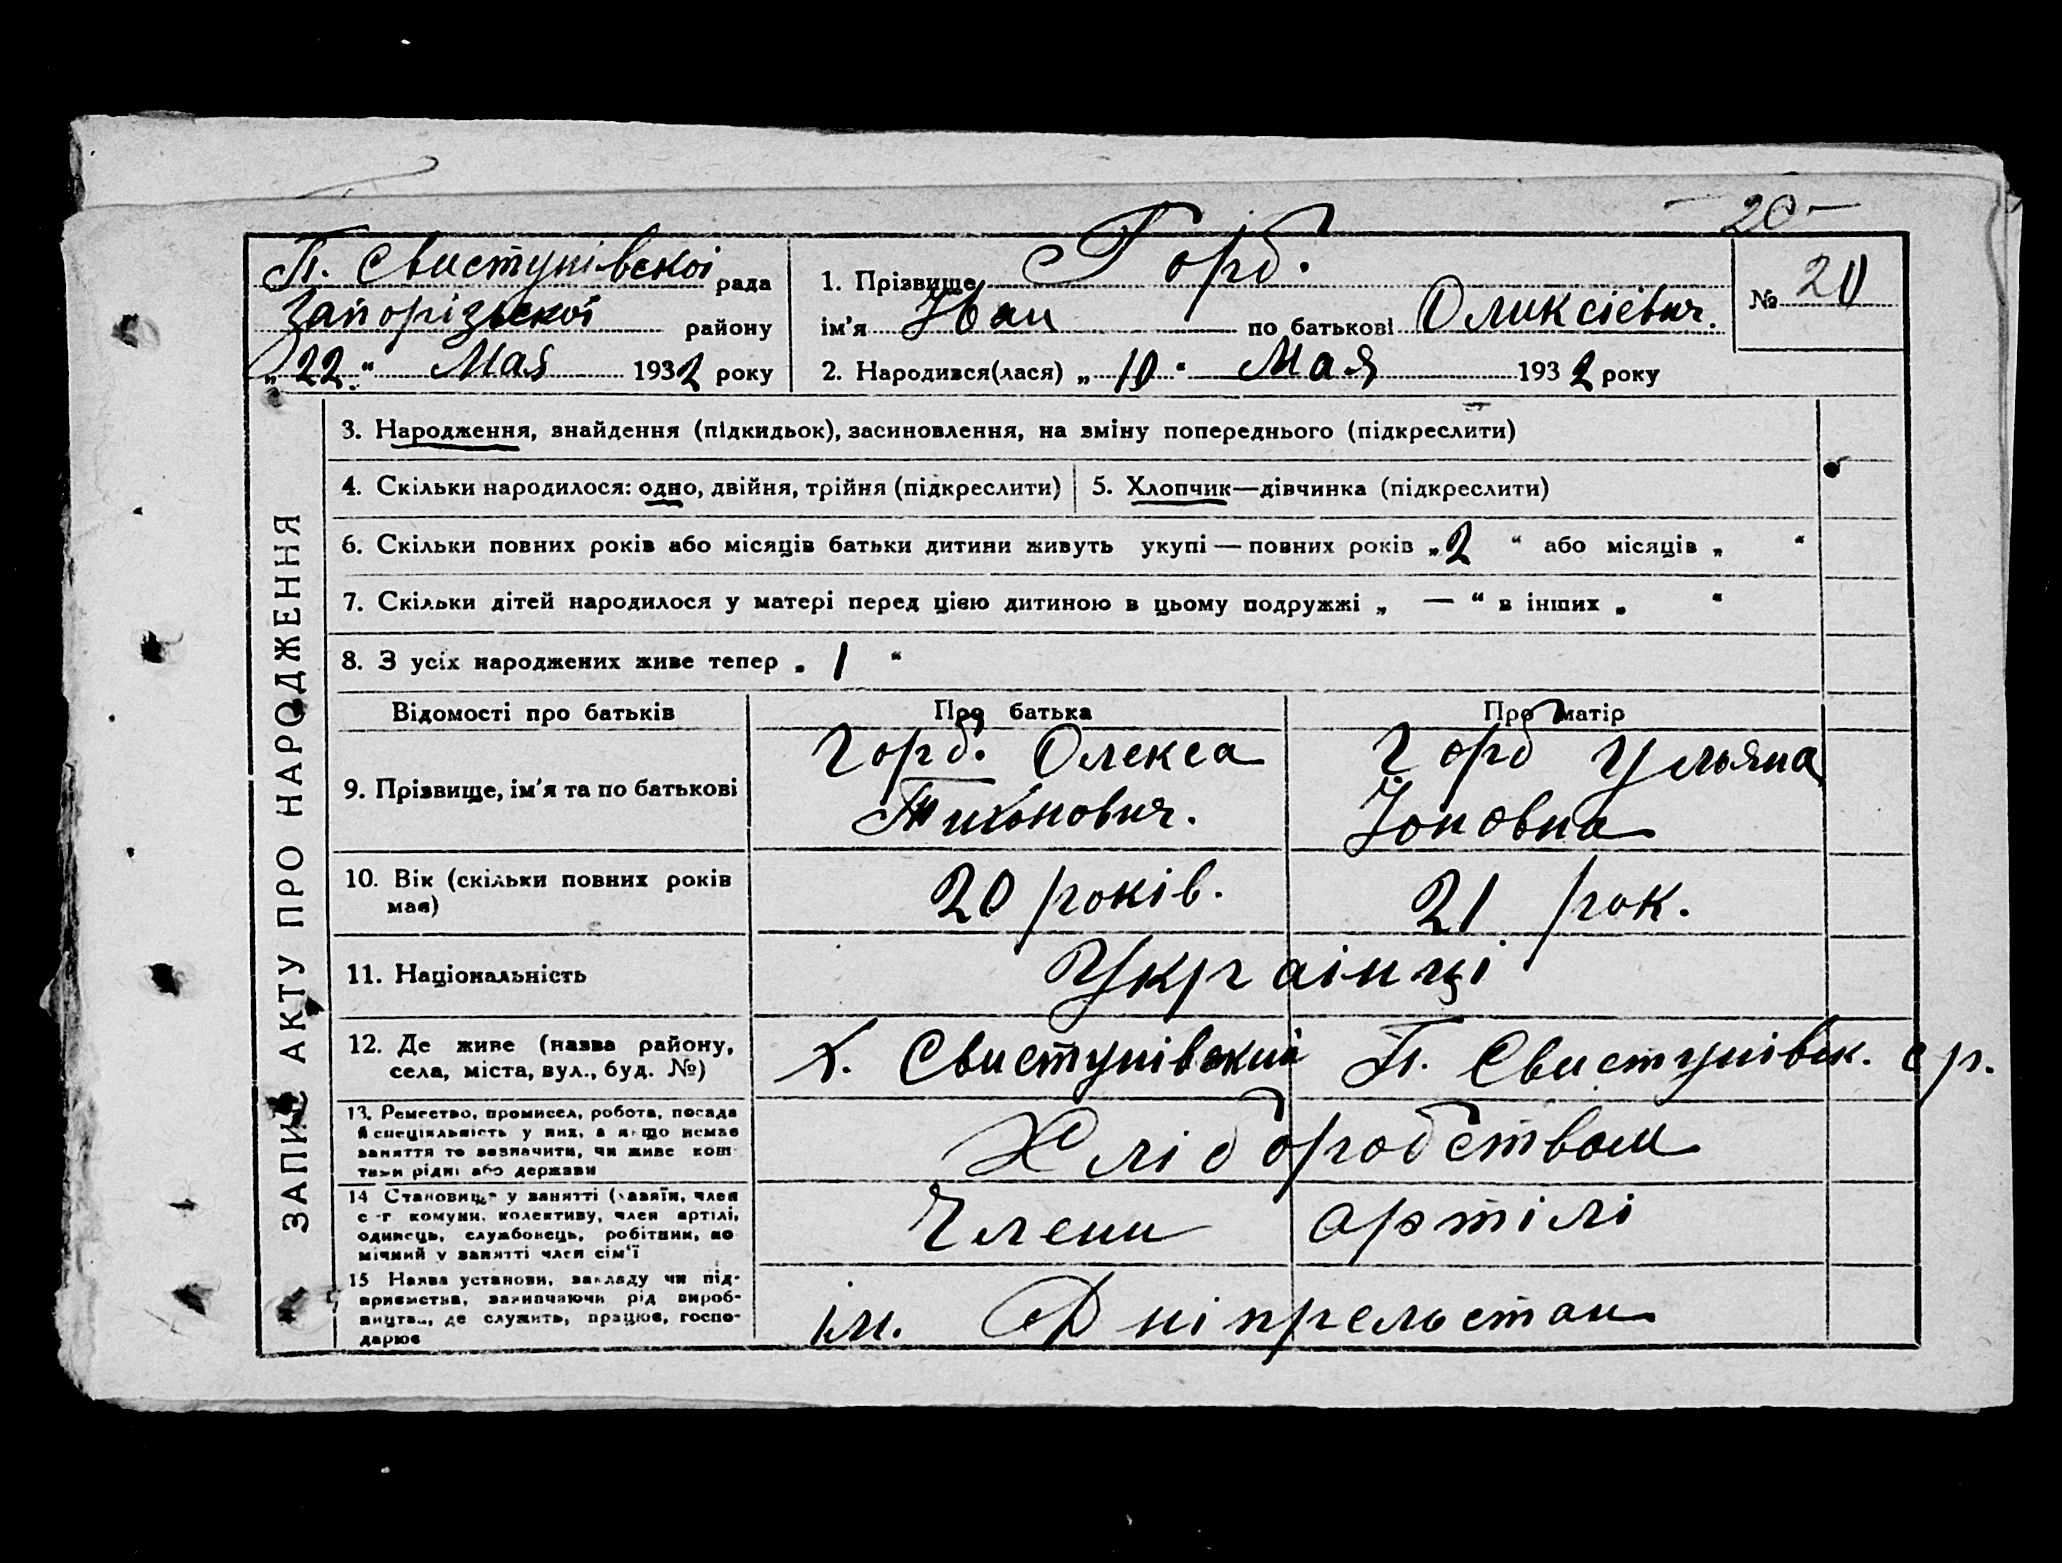 - 20 -
П. Свистунівскоі рада
Запорізьскоі району
„ 22 “ Мая 1932 року
1. Прізвище Горб.
ім'я Іван по батькові Оликсієвич.
2. Народився(лася) „ 10 “ Мая 1932 року
№ 20
ЗАПИС АКТУ ПРО НАРОДЖЕННЯ
3. Народження, знайдення (підкидьок), засиновлення, на зміну попереднього (підкреслити)
4. Скільки народилося: одно, двійня, трійня (підкреслити) 5. Хлопчик—дівчинка (підкреслити)
6. Скільки повних років або місяців батьки дитини живуть укупі — повних років „ 2 “ або місяців „ “
7. Скільки дітей народилося у матері перед цією дитиною в цьому подружжі „ — “ в інших „ “
8. З усіх народжених живе тепер „ 1 “
Відомості про батьків Про батька Про матір
9. Прізвище, ім'я та по батькові
Горб. Олекса
Тихонович.
Горб Ульяна
Іоновна
10. Вік (скільки повних років
має)
20 років.
21 рок.
11. Національність
Украінці
12. Де живе (назва району,
села, міста, вул., буд. №)
х. Свистунівский П. Свистунівск. ср.
13. Ремество, промисел, робота, посада
й спеціяльність у них, а якщо немає
заняття то зазначити, чи живе кош-
тами рідні або держави
Хлібородством
14 Становище у занятті (хазяїн, член
с.-г. комуни, колективу, член артілі,
одинець, службовець, робітник, по-
мічний у занятті член сім'ї
Члени артілі
15 Назва установи, закладу чи під-
приємства, зазначаючи рід вироб-
ництва, де служить, працює, госпо-
дарює
ім. Дніпрельстан